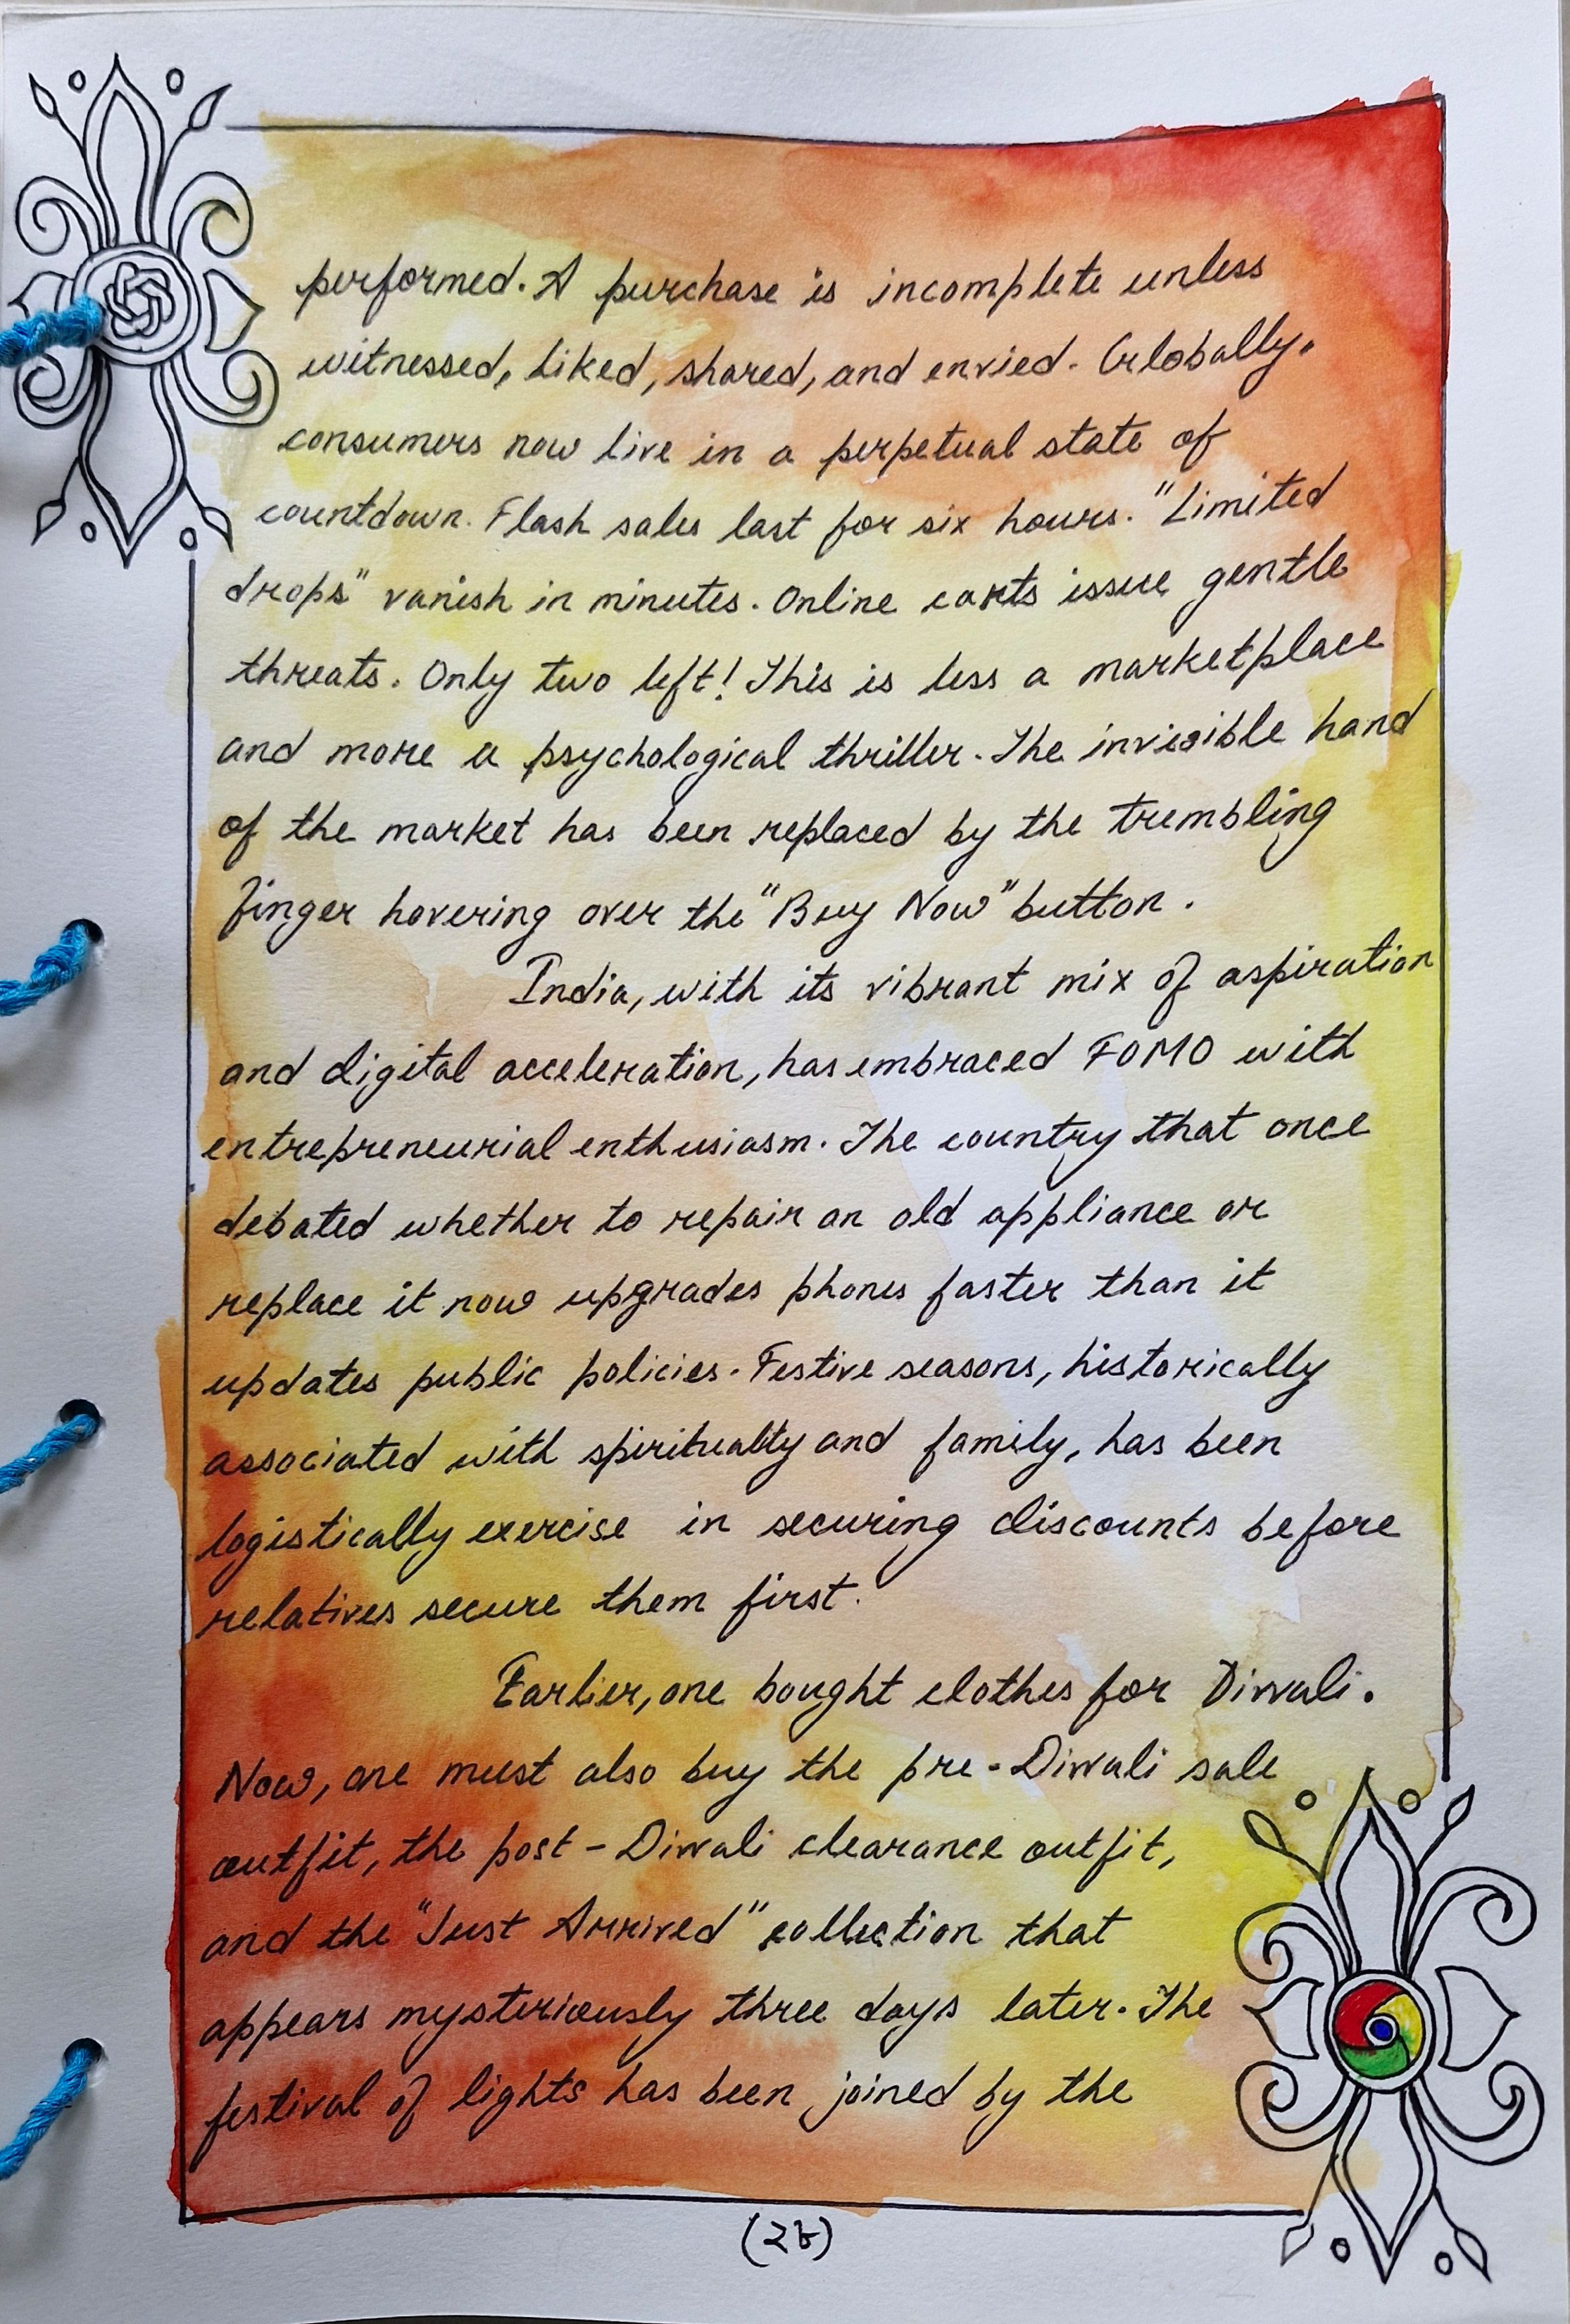 performed. A purchase is incomplete unless
witnessed, liked, shared, and envied. Globally,
consumers now live in a perpetual state of
countdown. Flash sales last for six hours. "Limited
drops" vanish in minutes. Online carts issue gentle
threats. Only two left! This is less a marketplace
and more a psychological thriller. The invisible hand
of the market has been replaced by the trembling
finger hovering over the "Buy Now" button.
India, with its vibrant mix of aspiration
and digital acceleration, has embraced FOMO with
entrepreneurial enthusiasm. The country that once
debated whether to repair an old appliance or
replace it now upgrades phones faster than it
updates public policies. Festive seasons, historically
associated with spirituality and family, has been
logistically exercise in securing discounts before
relatives secure them first.
Earlier, one bought clothes for Diwali.
Now, one must also buy the pre-Diwali sale
outfit, the post-Diwali clearance outfit,
and the "Just Arrived" collection that
appears mysteriously three days later. The
festival of lights has been joined by the